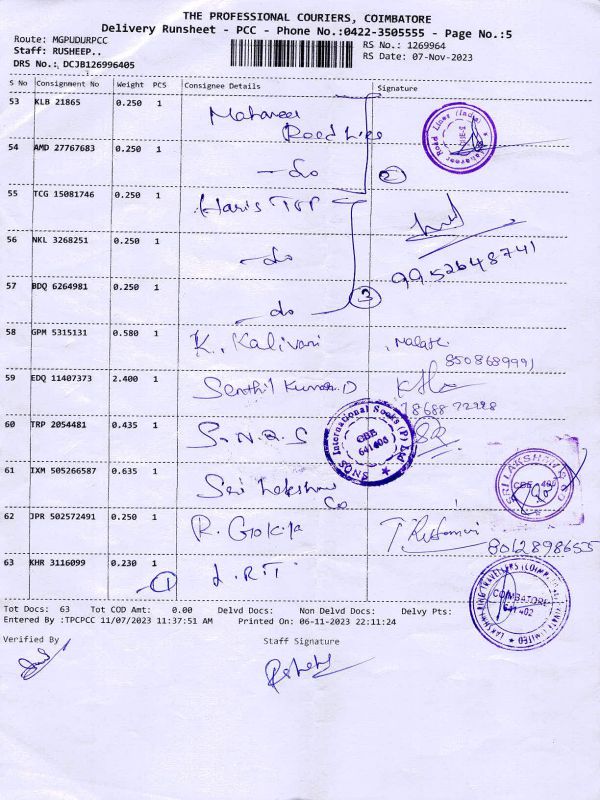 THE PROFESSIONAL COURIERS, COIMBATORE
Delivery Runsheet - PCC - Phone No.:0422-3505555 - Page No.:5
Route: MGPUDURPCC
RS No.: 1269964
Staff: RUSHEEP..
RS Date: 07-Nov-2023
DRS No.: DCJB126996405
S No Consignment No Weight PCS Consignee Details Signature
53 KLB 21865 0.250 1 Mahaveer
Road Lines
54 AMD 27767683 0.250 1 -do
2
55 TCG 15081746 0.250 1 Haris
56 NKL 3268251 0.250 1 -do
9952648741
57 BDQ 6264981 0.250 1 -do
3
58 GPM 5315131 0.580 1 K. Kalivani
8508689991
59 EDQ 11407373 2.400 1 Senthil Kumar.D
60 TRP 2054481 0.435 1 S.N.Q.S
SNQS International Socks (P) Ltd
CBE
641405
61 IXM 505266587 0.635 1 Sri Lakshmi
Co
SRI LAKSHMI & CO
62 JPR 502572491 0.250 1 R. Gokila
8012898655
63 KHR 3116099 0.230 1 L.R.T
1
COIMBATORE
641 402
Tot Docs: 63 Tot COD Amt: 0.00 Delvd Docs: Non Delvd Docs: Delvy Pts:
Entered By :TPCPCC 11/07/2023 11:37:51 AM Printed On: 06-11-2023 22:11:24
Verified By Staff Signature